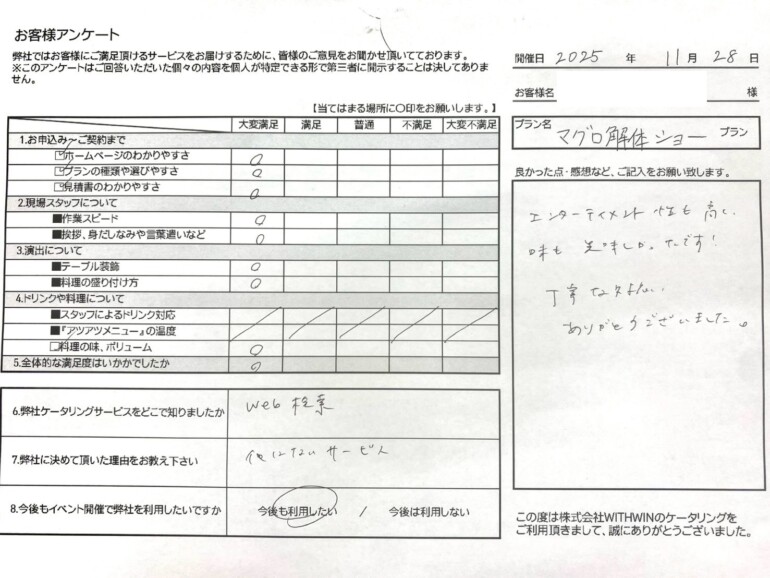 お客様アンケート
弊社ではお客様にご満足頂けるサービスをお届けするために、皆様のご意見をお聞かせ頂いております。
※このアンケートはご回答いただいた個々の内容を個人が特定できる形で第三者に開示することは決してありま
せん。
【当てはまる場所に〇印をお願いします。】
大変満足 満足 普通 不満足 大変不満足
1.お申込み～ご契約まで
ホームページのわかりやすさ ○
プランの種類や選びやすさ ○
見積書のわかりやすさ ○
2.現場スタッフについて
■作業スピード ○
■挨拶、身だしなみや言葉遣いなど ○
3.演出について
■テーブル装飾 ○
■料理の盛り付け方 ○
4.ドリンクや料理について
■スタッフによるドリンク対応
■『アツアツメニュー』の温度
□料理の味、ボリューム ○
5.全体的な満足度はいかかでしたか ○
6.弊社ケータリングサービスをどこで知りましたか web 検索
7.弊社に決めて頂いた理由をお教え下さい 他にないサービス
8.今後もイベント開催で弊社を利用したいですか 今後も利用したい / 今後は利用しない
開催日 2025 年 11 月 28 日
お客様名 様
プラン名 マグロ解体ショー プラン
良かった点・感想など、ご記入をお願い致します。
エンターテイメント性も高く、
味も美味しかったです!
丁寧な対応
ありがとうございました。
この度は株式会社WITHWINのケータリングを
ご利用頂きまして、誠にありがとうございました。